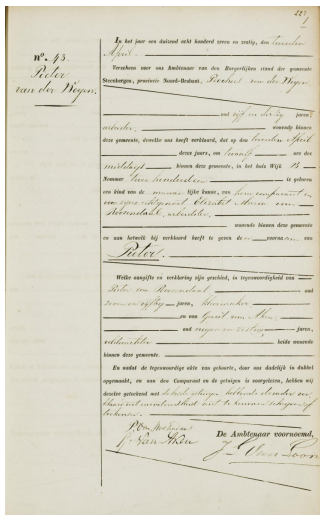 227
In het jaar een duizend acht honderd zeven en zestig, den tweeden
April
Verscheen voor ons Ambtenaar van den Burgerlijken stand der gemeente
Steenbergen, provincie Noord-Brabant, van der Wegen
N° 43.
Pieter
van der Wegen.
oud vijf en dertig jaren,
arbeider, wonende binnen
deze gemeente, dewelke ons heeft verklaard, dat op den tweeden April
dezes jaars, om twaalf ure des
middags binnen deze gemeente, in het huis Wijk B
Nommer twee honderd is geboren
een kind van de mannelijke kunne, van hem comparant en
van zijne
Roosendaal, arbeidster,
wonende binnen deze gemeente
en aan hetwelk hij verklaard heeft te geven den voornaam van
Pieter.
Welke aangifte en verklaring zijn geschied, in tegenwoordigheid van
Pieter van Roosendaal oud
en vijftig jaren,
en van Gerrit van Aken
oud negen en jaren,
beide wonende
binnen deze gemeente.
En nadat de tegenwoordige akte van geboorte, door ons dadelijk in dubbel
opgemaakt, en aan den Comparant en de getuigen is voorgelezen, hebben wij
dezelve geteekend met beide getuigen hebbende de
niet te kunnen schrijven of
teekenen.
G. van Aken
De Ambtenaar voornoemd,
van Loon